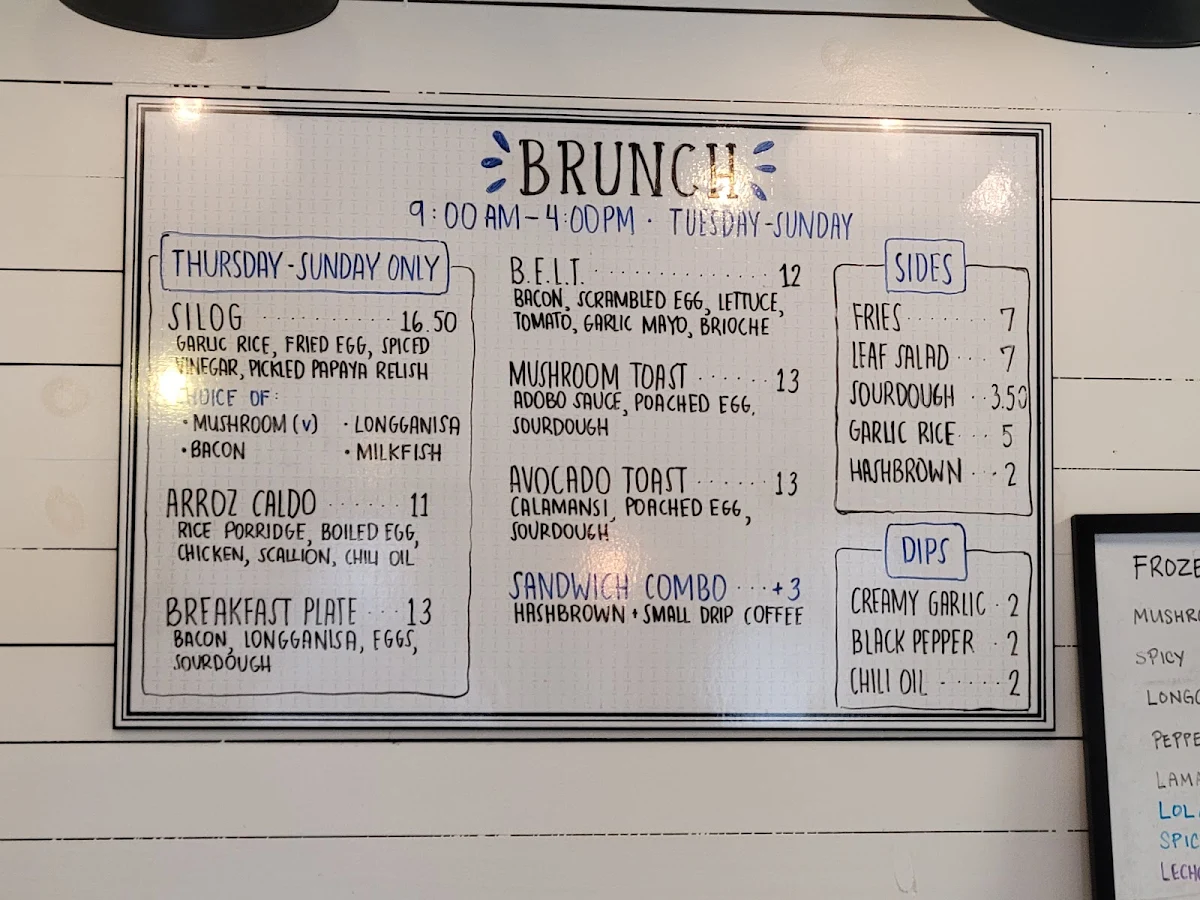 BRUNCH
9:00 AM - 4:00PM · TUESDAY - SUNDAY
THURSDAY - SUNDAY ONLY
SILOG ............ 16.50
GARLIC RICE, FRIED EGG, SPICED
VINEGAR, PICKLED PAPAYA RELISH
CHOICE OF:
· MUSHROOM (V) · LONGGANISA
· BACON · MILKFISH
ARROZ CALDO ....... 11
RICE PORRIDGE, BOILED EGG,
CHICKEN, SCALLION, CHILI OIL
BREAKFAST PLATE ... 13
BACON, LONGGANISA, EGGS,
SOURDOUGH
B.E.L.T. ............ 12
BACON, SCRAMBLED EGG, LETTUCE,
TOMATO, GARLIC MAYO, BRIOCHE
MUSHROOM TOAST ...... 13
ADOBO SAUCE, POACHED EGG,
SOURDOUGH
AVOCADO TOAST ...... 13
CALAMANSI, POACHED EGG,
SOURDOUGH
SANDWICH COMBO ... +3
HASHBROWN + SMALL DRIP COFFEE
SIDES
FRIES ........ 7
LEAF SALAD ... 7
SOURDOUGH .. 3.50
GARLIC RICE ... 5
HASHBROWN .. 2
DIPS
CREAMY GARLIC . 2
BLACK PEPPER . 2
CHILI OIL ...... 2
FROZE
MUSHRO
SPICY
LONGG
PEPPE
LAMA
LOL
SPIC
LECHO